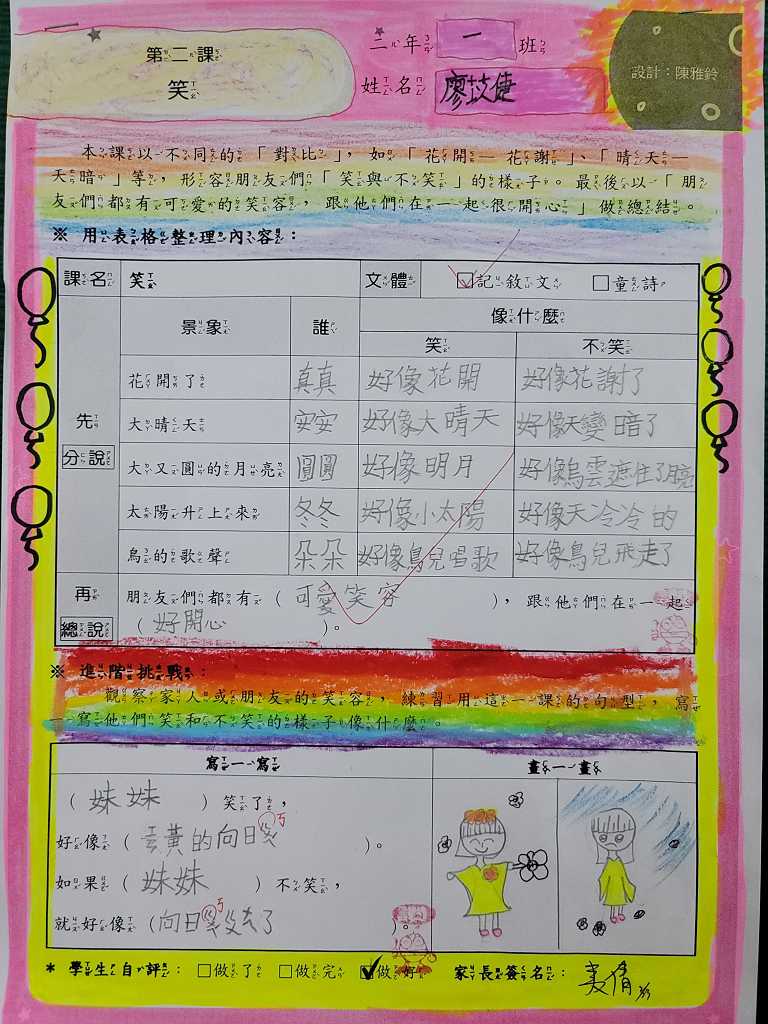 第二課
笑
二年 一 班
姓名
設計：陳雅鈴
本課以不同的「對比」，如「花開—花謝」、「晴天—
天暗」等，形容朋友們「笑與不笑」的樣子。最後以「朋
友們都有可愛的笑容，跟他們在一起很開心」做總結。
※ 用表格整理內容：
課名 笑 文體 ☑記敘文 □童詩
景象 誰 像什麼
笑 不笑
先
分說
花開了 真真 好像花開 好像花謝了
大晴天 安安 好像大晴天 好像天變暗了
大又圓的月亮 圓圓 好像明月 好像烏雲遮住了月亮
太陽升上來 冬冬 好像小太陽 好像天冷冷的
鳥的歌聲 朵朵 好像鳥兒唱歌 好像鳥兒飛走了
再
總說
朋友們都有（可愛笑容），跟他們在一起
（好開心）。
※ 進階挑戰：
觀察家人或朋友的笑容，練習用這一課的句型，寫
一寫他們笑和不笑的樣子像什麼。
寫一寫 畫一畫
（妹妹）笑了，
好像（黃的向日）。
如果（妹妹）不笑，
就好像（向日了）。
* 學生自評：□做了 □做完 ☑做好 家長簽名：